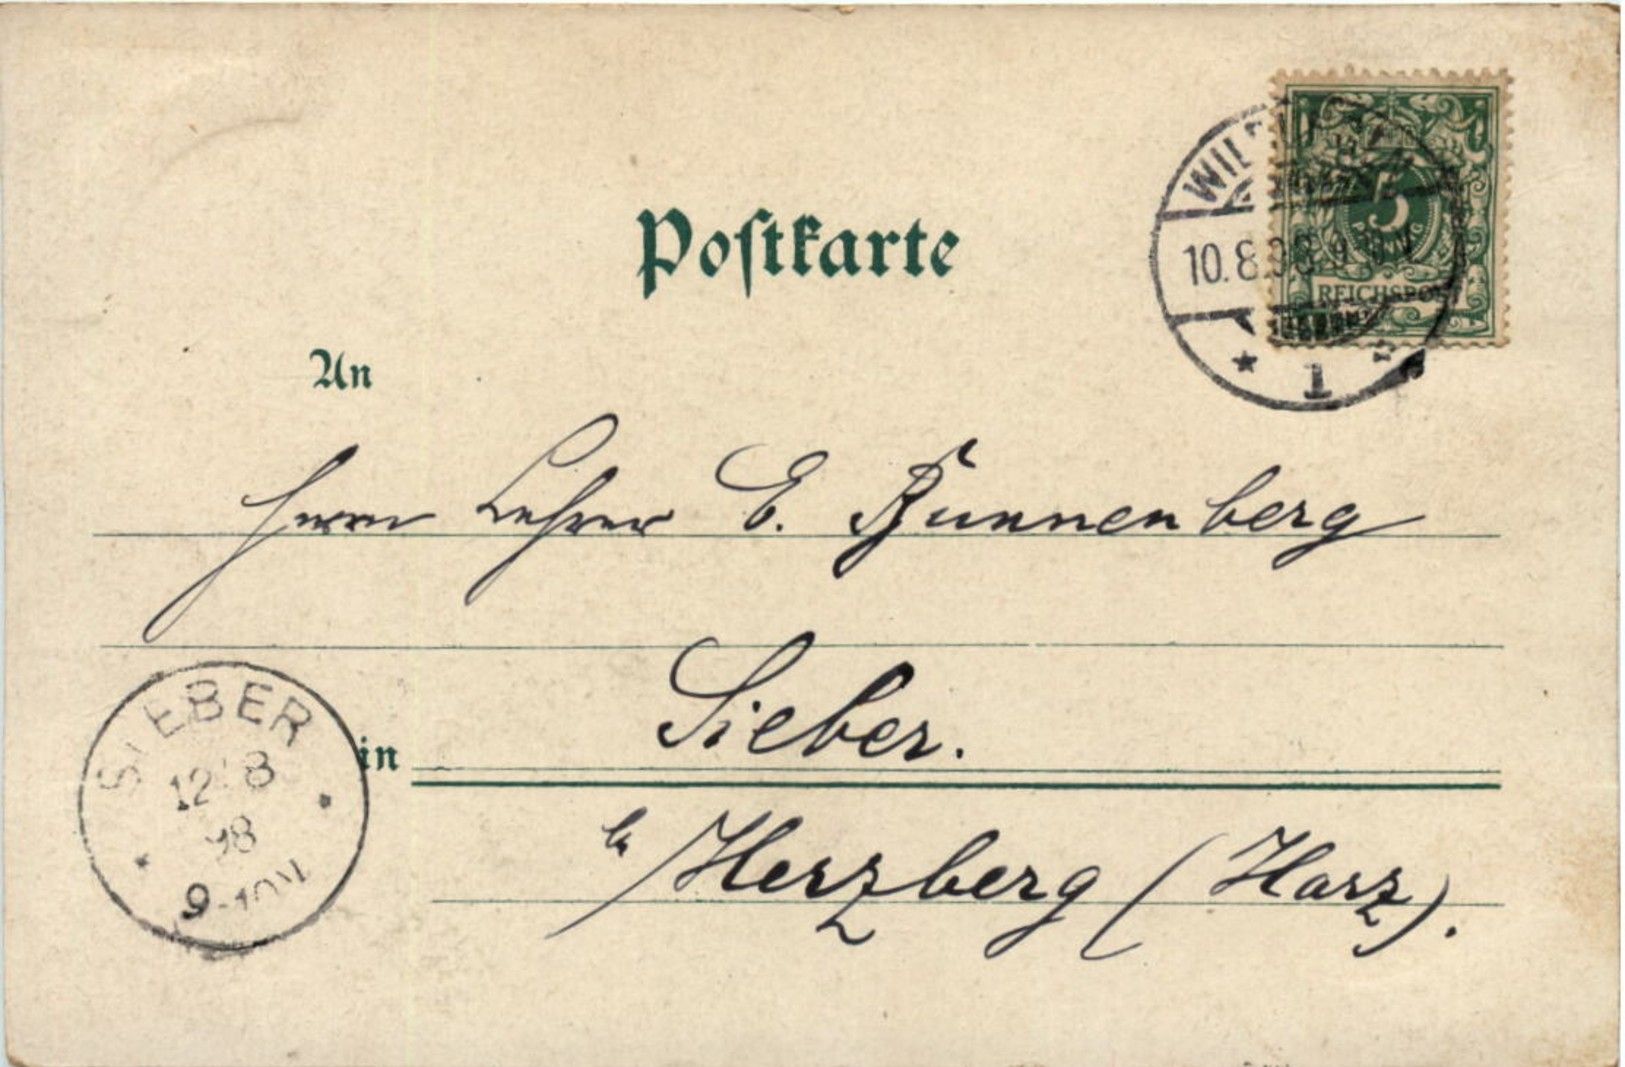 Postkarte
10.8.98
5
REICHSPOST
1
An
Herrn Lehrer E. Bunnenberg
in Sieber.
b/ Herzberg (Harz).
SIEBER
12 8
98
9-10V